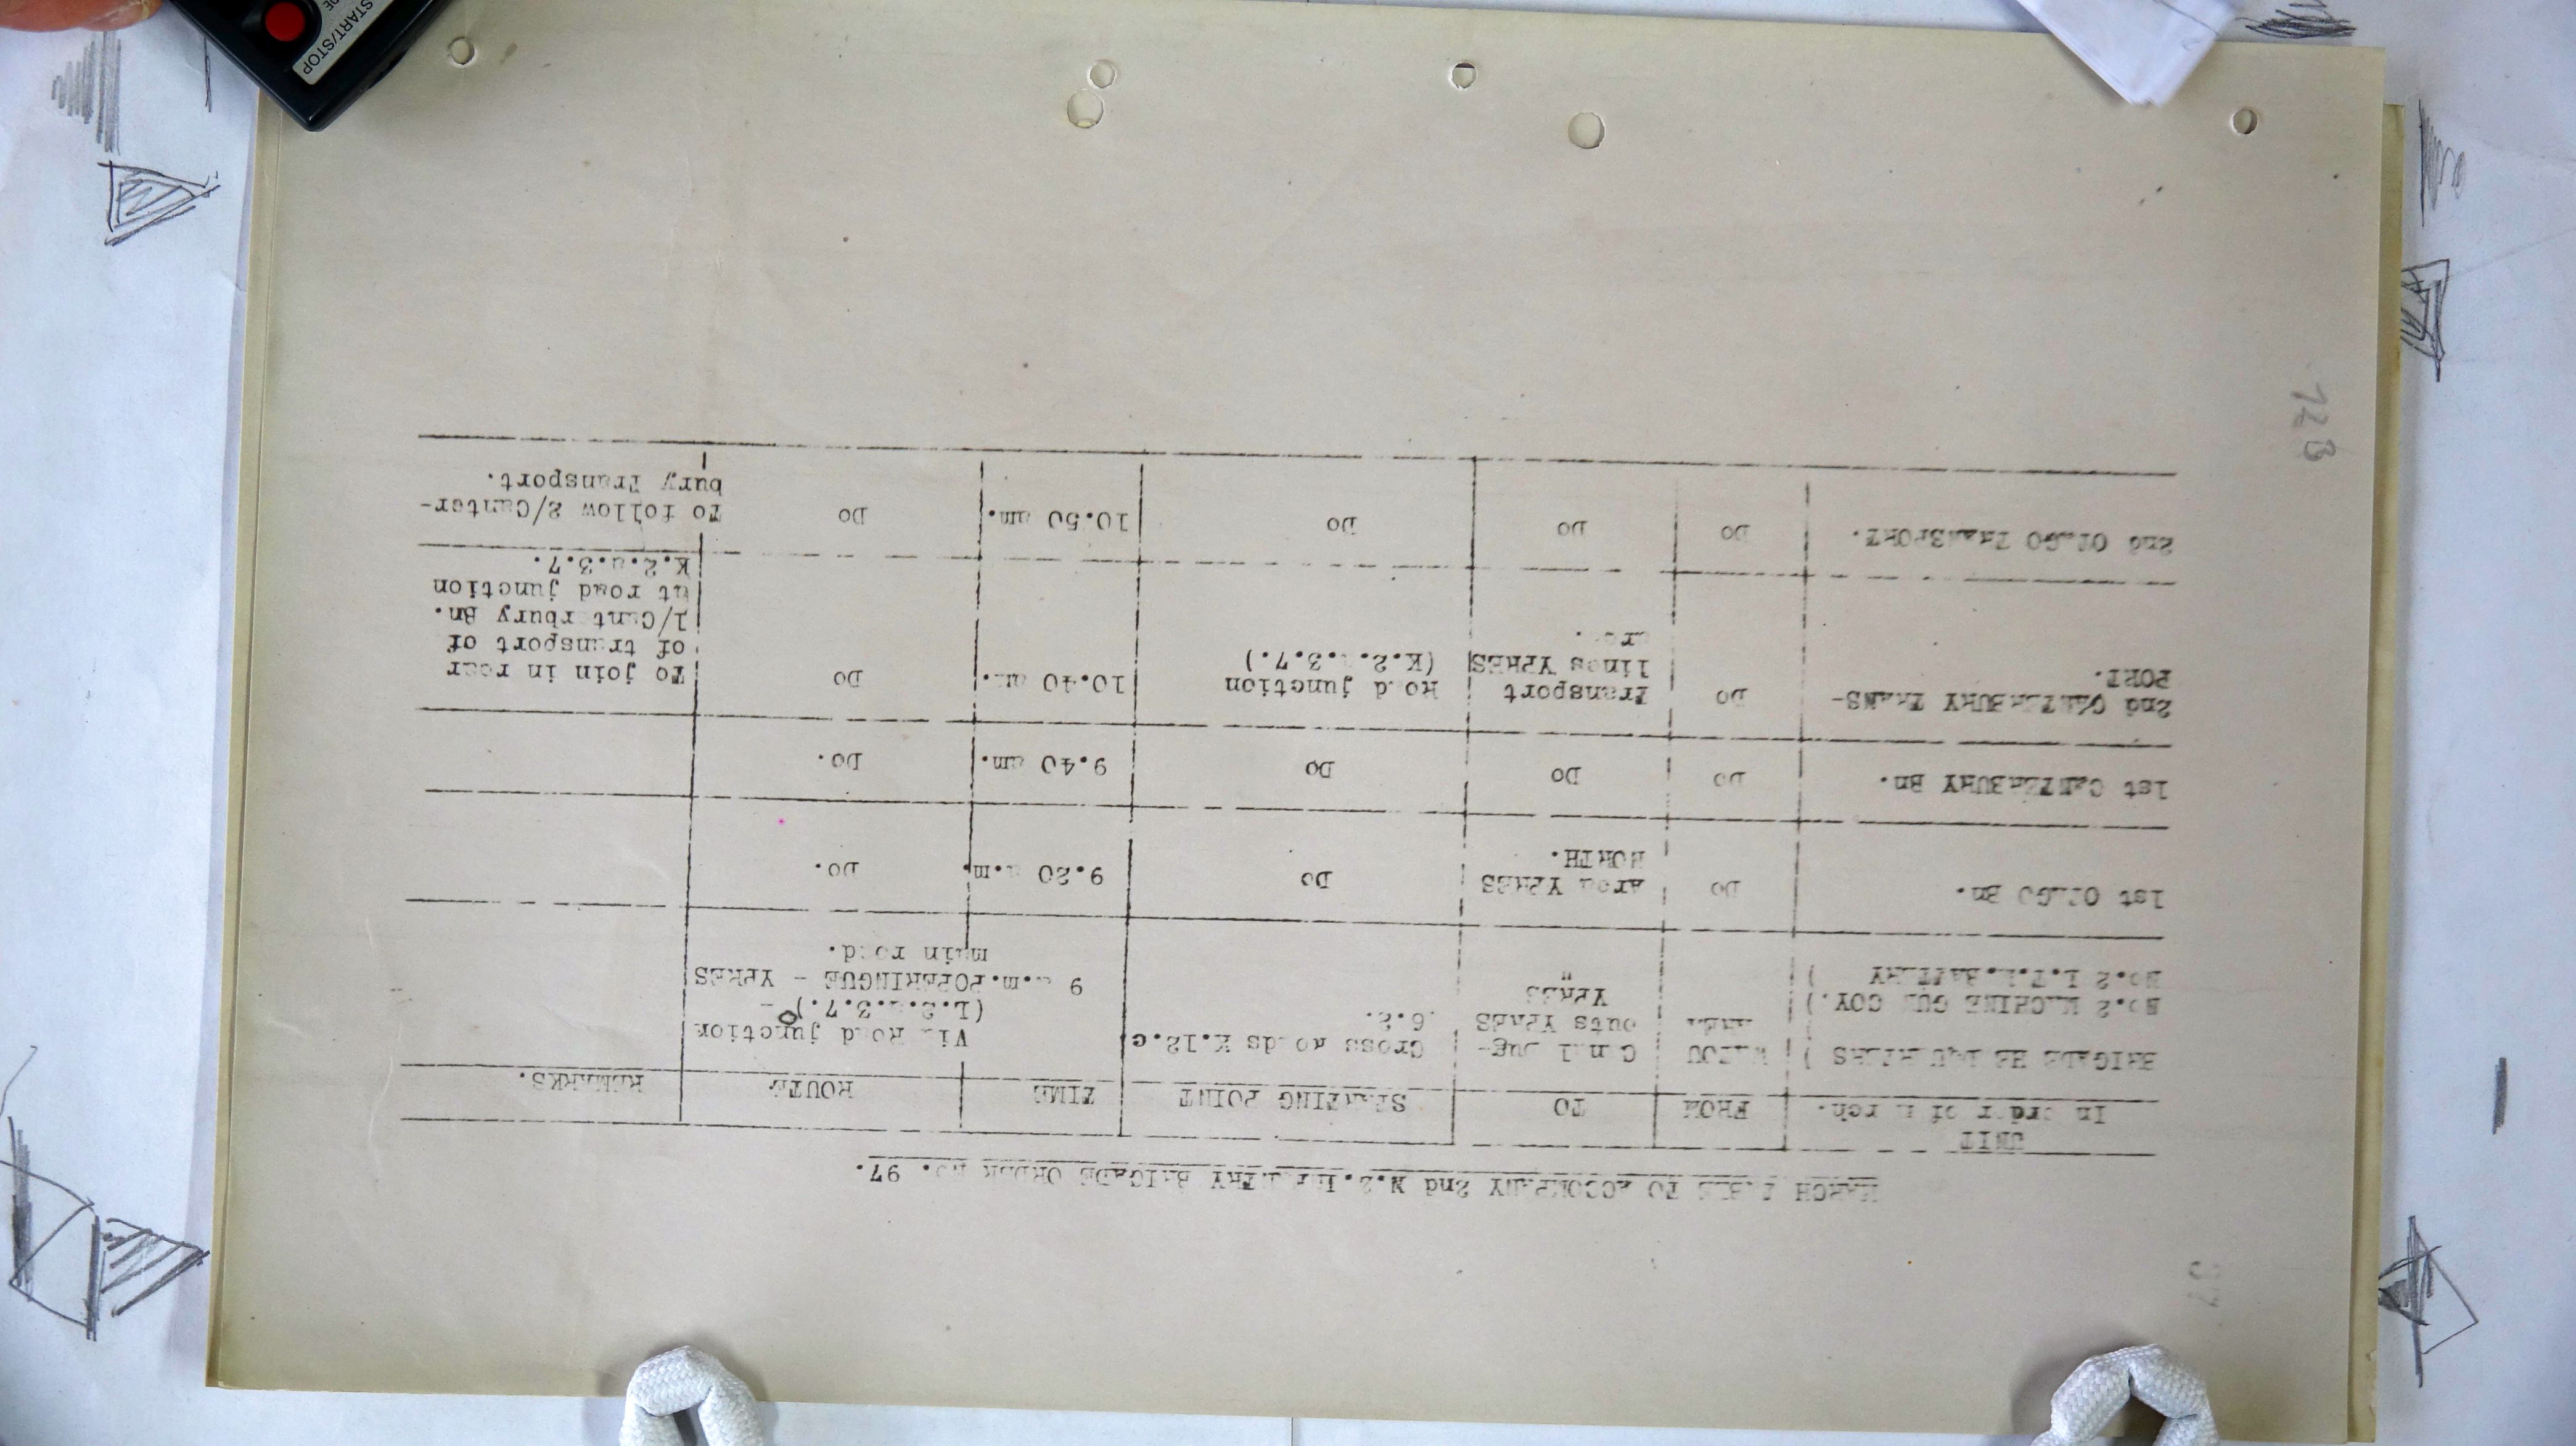 MARCH TABLE TO ACCOMPANY 2nd N.Z. INFANTRY BRIGADE ORDER No. 97.
UNIT In order of march. FROM TO STARTING POINT TIME ROUTE REMARKS.
BRIGADE HEADQUARTERS )
No.2 MACHINE GUN COY.)
No.2 L.T.M.BATTERY )
WATOU
AREA
Canal Dug-
outs YPRES
YPRES
"
Cross Roads K.12.c
6.2.
9 a.m.
Via Road junction
(L.2.a.3.7.) -
POPERINGUE - YPRES
main road.
1st OTAGO Bn. Do Area YPRES Do 9.20 a.m. Do.
NORTH.
1st CANTERBURY Bn. Do Do Do 9.40 am. Do.
2nd CANTERBURY TRANS-
PORT.
Do
Transport
lines YPRES
area.
Road junction
(K.2.a.3.7.)
10.40 am.
Do
To join in rear
of transport of
1/Canterbury Bn.
at road junction
K.2.a.3.7.
2nd OTAGO TRANSPORT. Do Do Do 10.50 am. Do To follow 2/Canter-
bury Transport.
728
START/STOP